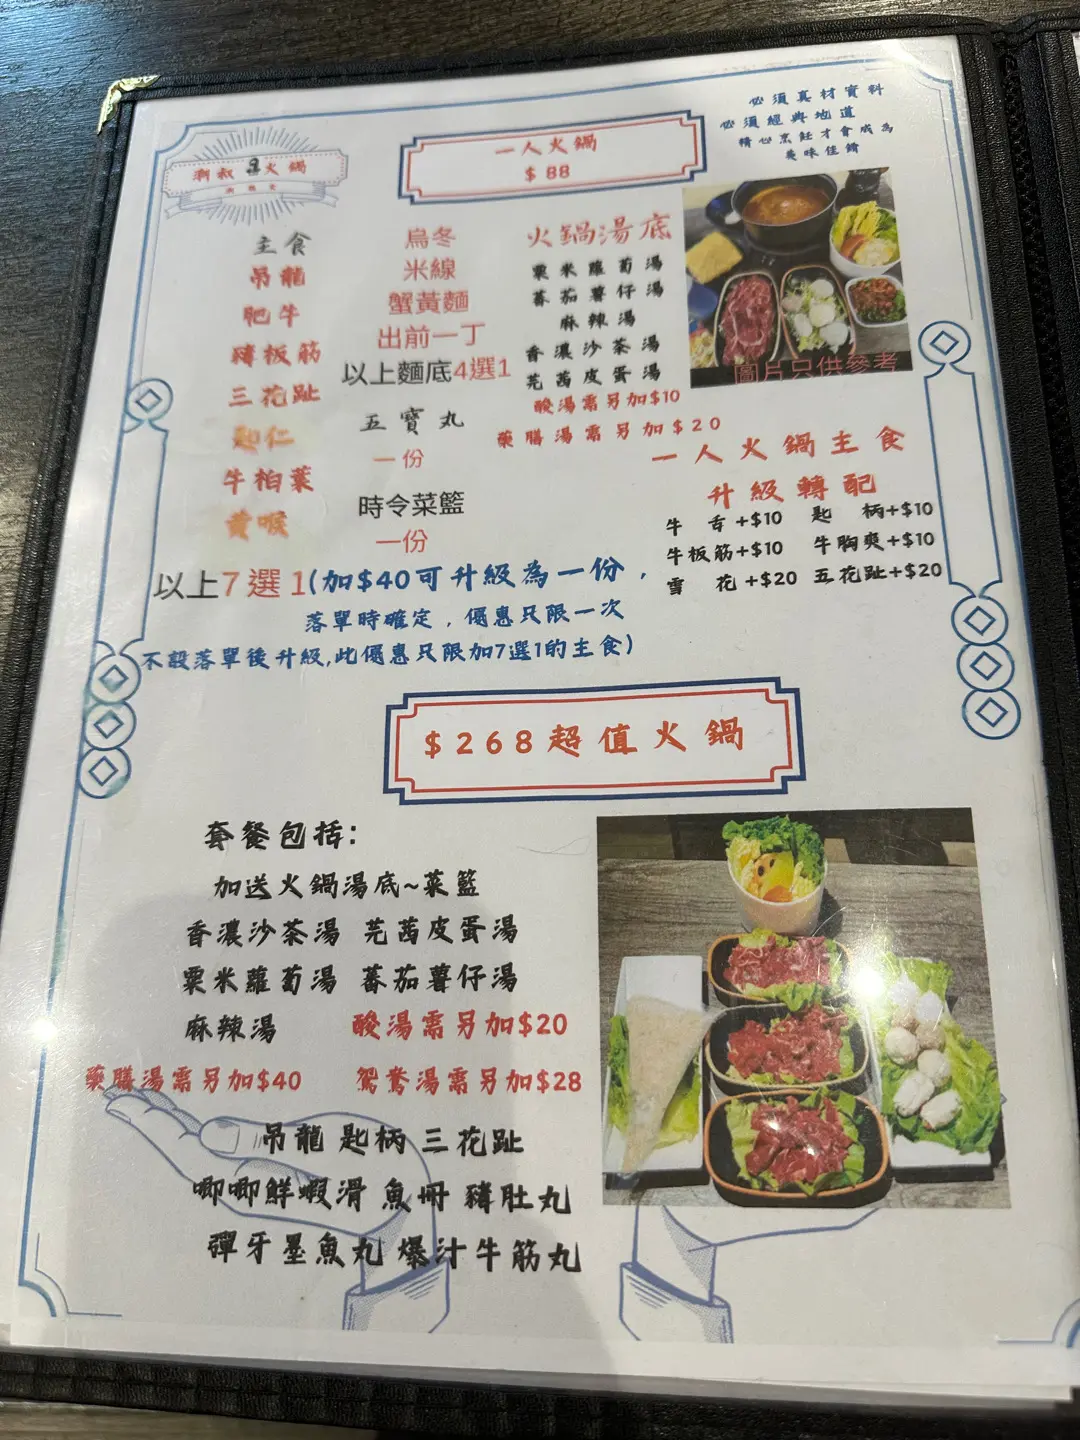 潮叔 火鍋
一人火鍋
$ 88
必須真材實料
必須經典地道
精心烹飪才會成為
美味佳餚
主食
吊龍
肥牛
豬板筋
三花趾
匙仁
牛柏葉
黃喉
烏冬
米線
蟹黃麵
出前一丁
以上麵底4選1
五寶丸
一份
時令菜籃
一份
火鍋湯底
粟米蘿蔔湯
蕃茄薯仔湯
麻辣湯
香濃沙茶湯
芫茜皮蛋湯
酸湯需另加$10
藥膳湯需另加$20
圖片只供參考
一人火鍋主食
升級轉配
牛舌+$10 匙柄+$10
牛板筋+$10 牛胸爽+$10
雪花+$20 五花趾+$20
以上7選1(加$40可升級為一份,
落單時確定,優惠只限一次
不設落單後升級,此優惠只限加7選1的主食)
$268超值火鍋
套餐包括:
加送火鍋湯底~菜籃
香濃沙茶湯 芫茜皮蛋湯
粟米蘿蔔湯 蕃茄薯仔湯
麻辣湯 酸湯需另加$20
藥膳湯需另加$40 鴛鴦湯需另加$28
吊龍 匙柄 三花趾
唧唧鮮蝦滑 魚冊 豬肚丸
彈牙墨魚丸 爆汁牛筋丸